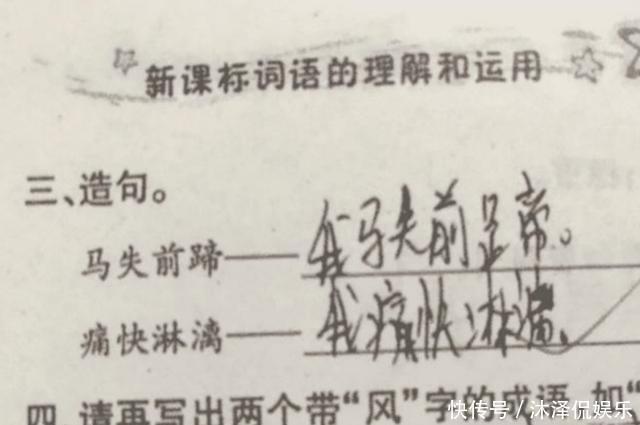 新课标词语的理解和运用
三、造句。
马失前蹄——我马失前足帝。
痛快淋漓——我痛快淋漓。
四、请再写出两个带“风”字的成语,如“
快传号/沐泽侃娱乐